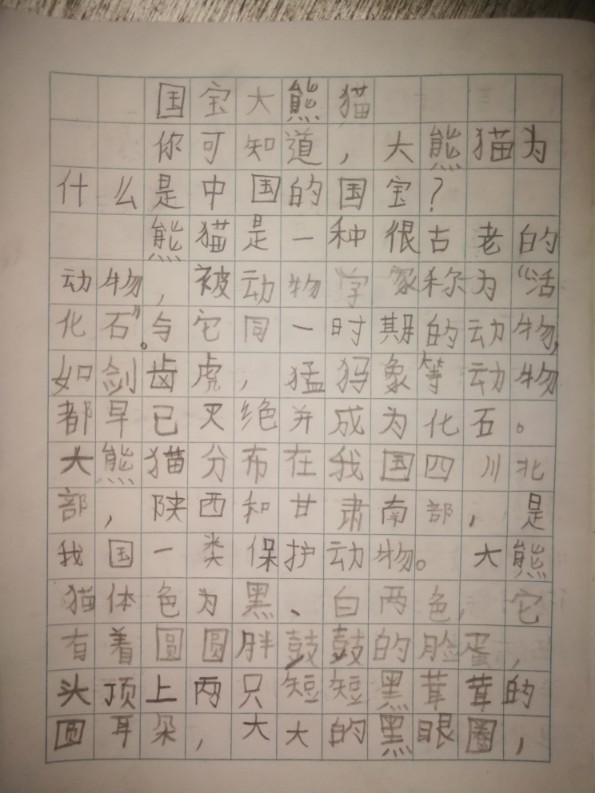 国宝大熊猫
你可知道，大熊猫为
什么是中国的国宝？
熊猫是一种很古老的
动物，被动物学家称为“活
化石”。与它同一时期的动物，
如剑齿虎，猛犸象等动物
都早已灭绝并成为化石。
大熊猫分布在我国四川北
部，陕西和甘肃南部，是
我国一类保护动物。大熊
猫体色为黑、白两色，它
有着圆圆胖鼓鼓的脸蛋，
头顶上两只短短黑茸茸的
圆耳朵，大大的黑眼圈，